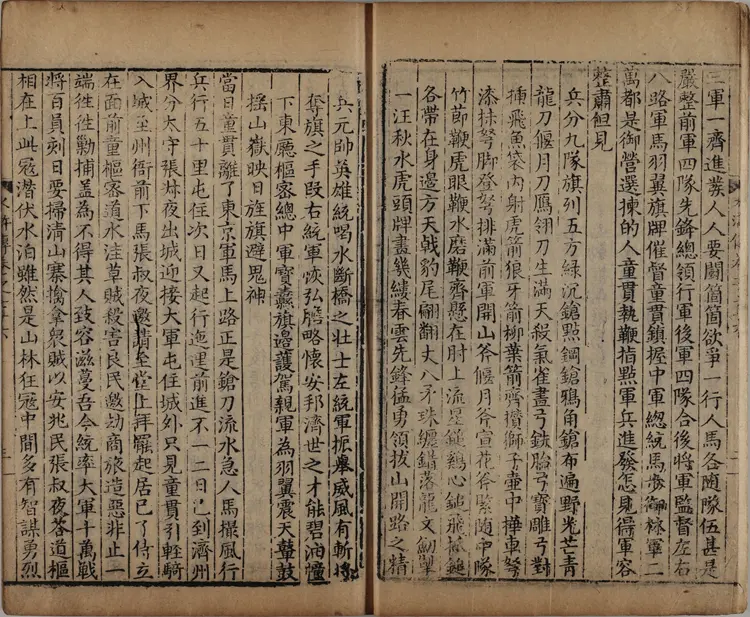 三軍一齊進發人人要鬭箇箇欲爭一行人馬各隨隊伍甚是
嚴整前軍四隊先鋒總領行軍後軍四隊合後將軍監督左右
八路軍馬羽翼旗牌催督童貫鎮握中軍總統馬步御林軍二
萬都是御營選揀的人童貫執鞭指點軍兵進發怎見得軍容
整肅但見
兵分九隊旗列五方綠沉鎗點鋼鎗鴉角鎗布遍野光芒青
龍刀偃月刀鴈翎刀生滿天殺氣雀畫弓鉄胎弓寶雕弓對
揷飛魚袋內射虎箭狼牙箭柳葉箭齊攢獅子壺中樺車弩
漆抹弩脚登弩排滿前軍開山斧偃月斧宣花斧緊隨中隊
竹節鞭虎眼鞭水磨鞭齊懸在肘上流星鎚鷄心鎚飛抓鎚
各帶在身邊方天戟豹尾翩翻丈八矛珠纏錯落龍文劒掣
一汪秋水虎頭牌畫幾縷春雲先鋒猛勇領拔山開路之精
兵元帥英雄統喝水斷橋之壯士左統軍振舉威風有斬將
奪旗之手段右統軍恢弘膽略懷安邦濟世之才能碧油幢
下東廳樞密總中軍寶纛旗邉護駕親軍為羽翼震天鼙鼓
搖山嶽映日旌旗避鬼神
當日童貫離了東京軍馬上路正是鎗刀流水急人馬撮風行
兵行五十里屯住次日又起行迤邐前進不一二日已到濟州
界分太守張叔夜出城迎接大軍屯住城外只見童貫引輕騎
入城至州衙前下馬張叔夜邀請至堂上拜罷起居已了侍立
在面前童樞密道水洼草賊殺害良民邀劫商旅造惡非止一
端徃徃勦捕蓋為不得其人致容滋蔓吾今統率大軍十萬戰
將百員刻日要掃清山寨擒拿衆賊以安兆民張叔夜荅道樞
相在上此冦潛伏水泊雖然是山林狂冦中間多有智謀勇烈